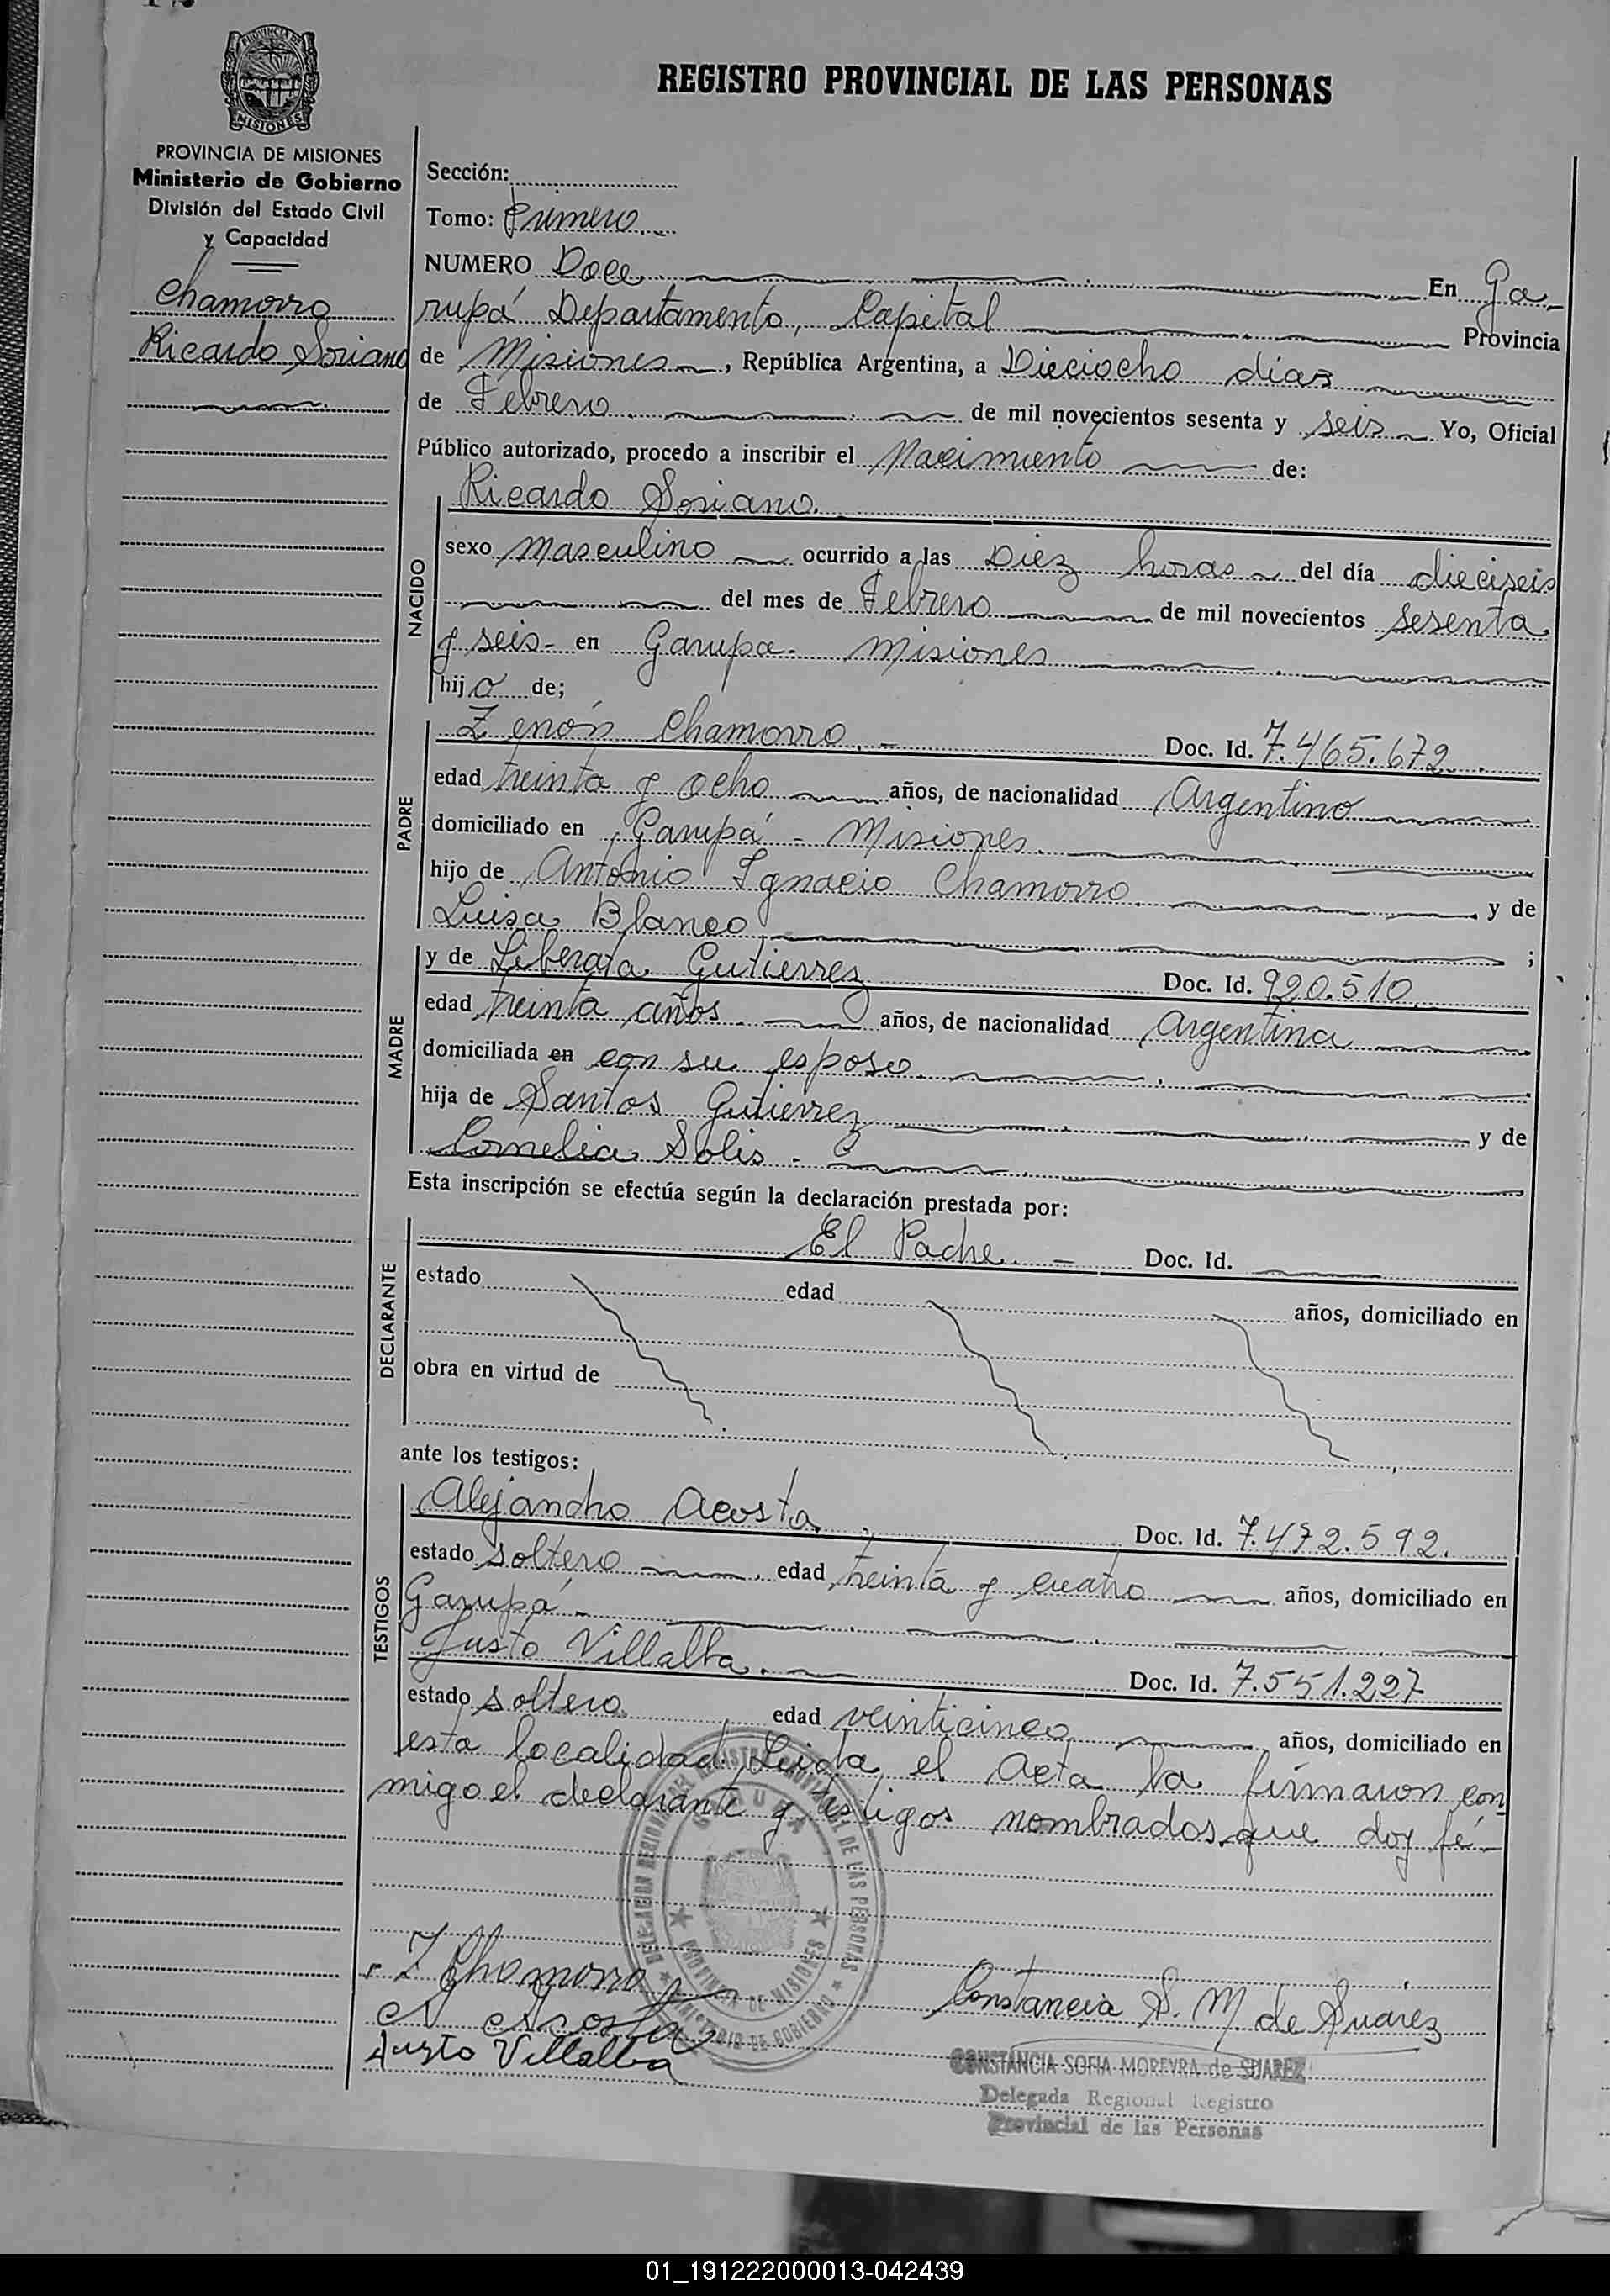 PROVINCIA DE
MISIONES
REGISTRO PROVINCIAL DE LAS PERSONAS
PROVINCIA DE MISIONES
Ministerio de Gobierno
División del Estado Civil
y Capacidad
Chamorro
Ricardo Soriano
Sección:
Tomo: Primero
NUMERO Doce En Ga-
rupá Departamento, Capital Provincia
de Misiones, República Argentina, a Dieciocho días
de Febrero de mil novecientos sesenta y seis Yo, Oficial
Público autorizado, procedo a inscribir el Nacimiento de:
Ricardo Soriano.
NACIDO
sexo masculino ocurrido a las Diez horas del día dieciseis
del mes de Febrero de mil novecientos sesenta
y seis- en Garupa- Misiones
hijo de;
PADRE
Zenón Chamorro.- Doc. Id. 7.465.672.
edad treinta y ocho años, de nacionalidad Argentino
domiciliado en Garupá - Misiones.
hijo de Antonio Ignacio Chamorro. y de
Luisa Blanco ;
MADRE
y de Liberata Gutierrez Doc. Id. 920.510.
edad treinta años. años, de nacionalidad Argentina
domiciliada en con su esposo.
hija de Santos Gutierrez y de
Cornelia Solis -
Esta inscripción se efectúa según la declaración prestada por:
DECLARANTE
El Padre. - Doc. Id.
estado edad años, domiciliado en
obra en virtud de
ante los testigos:
TESTIGOS
Alejandro Acosta. Doc. Id. 7.472.592.
estado soltero edad treinta y cuatro años, domiciliado en
Garupá-
Justo Villalba. Doc. Id. 7.551.227
estado soltero. edad veinticinco años, domiciliado en
esta localidad, Leida el acta la firmaron con
migo el declarante y testigos nombrados que doy fé-
DELEGACION REGIONAL DEL REGISTRO PROVINCIAL DE LAS PERSONAS
GARUPA
PROVINCIA DE MISIONES
MINISTERIO DE GOBIERNO
Z Chamorro
A Acosta
Justo Villalba
Constancia S. M de Suárez
CONSTANCIA SOFIA MOREYRA de SUAREZ
Delegada Regional Registro
Provincial de las Personas
01_191222000013-042439